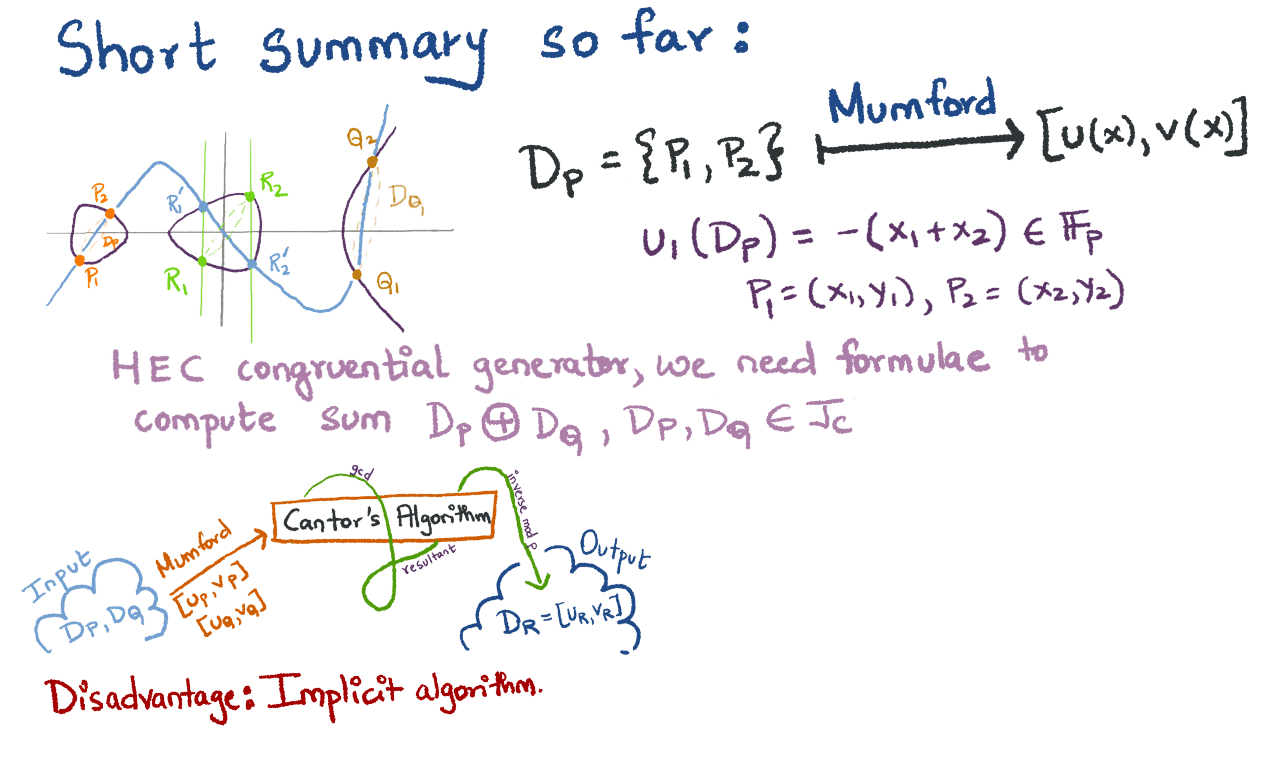 Short summary so far:
P₂
Dₚ
P₁
R₁'
R₂
R₁
R₂'
Q₂
D_Q₁
Q₁
Dₚ = {P₁, P₂} ⟼ [u(x), v(x)]
Mumford
u₁(Dₚ) = -(x₁+x₂) ∈ 𝔽ₚ
P₁=(x₁,y₁), P₂=(x₂,y₂)
HEC congruential generator, we need formulae to
compute sum Dₚ ⊕ D_Q, Dₚ, D_Q ∈ J_C
Input
Dₚ, D_Q
Mumford
[uₚ,vₚ]
[u_Q,v_Q]
gcd
Cantor's Algorithm
resultant
inverse mod p
Output
D_R = [u_R, v_R]
Disadvantage: Implicit algorithm.